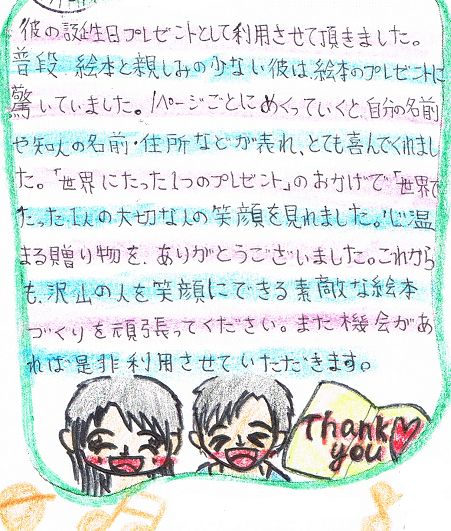 彼の誕生日プレゼントとして利用させて頂きました。
普段、絵本と親しみの少ない彼は、絵本のプレゼントに
驚いていました。1ページごとにめくっていくと、自分の名前
や知人の名前・住所などが表れ、とても喜んでくれまし
た。「世界にたった1つのプレゼント」のおかげで「世界で
たった1人の大切な人の笑顔を見れました。」心温
まる贈り物を、ありがとうございました。これから
も、沢山の人を笑顔にできる素敵な絵本
づくりを頑張ってください。また機会があ
れば是非利用させていただきます。
Thank
you